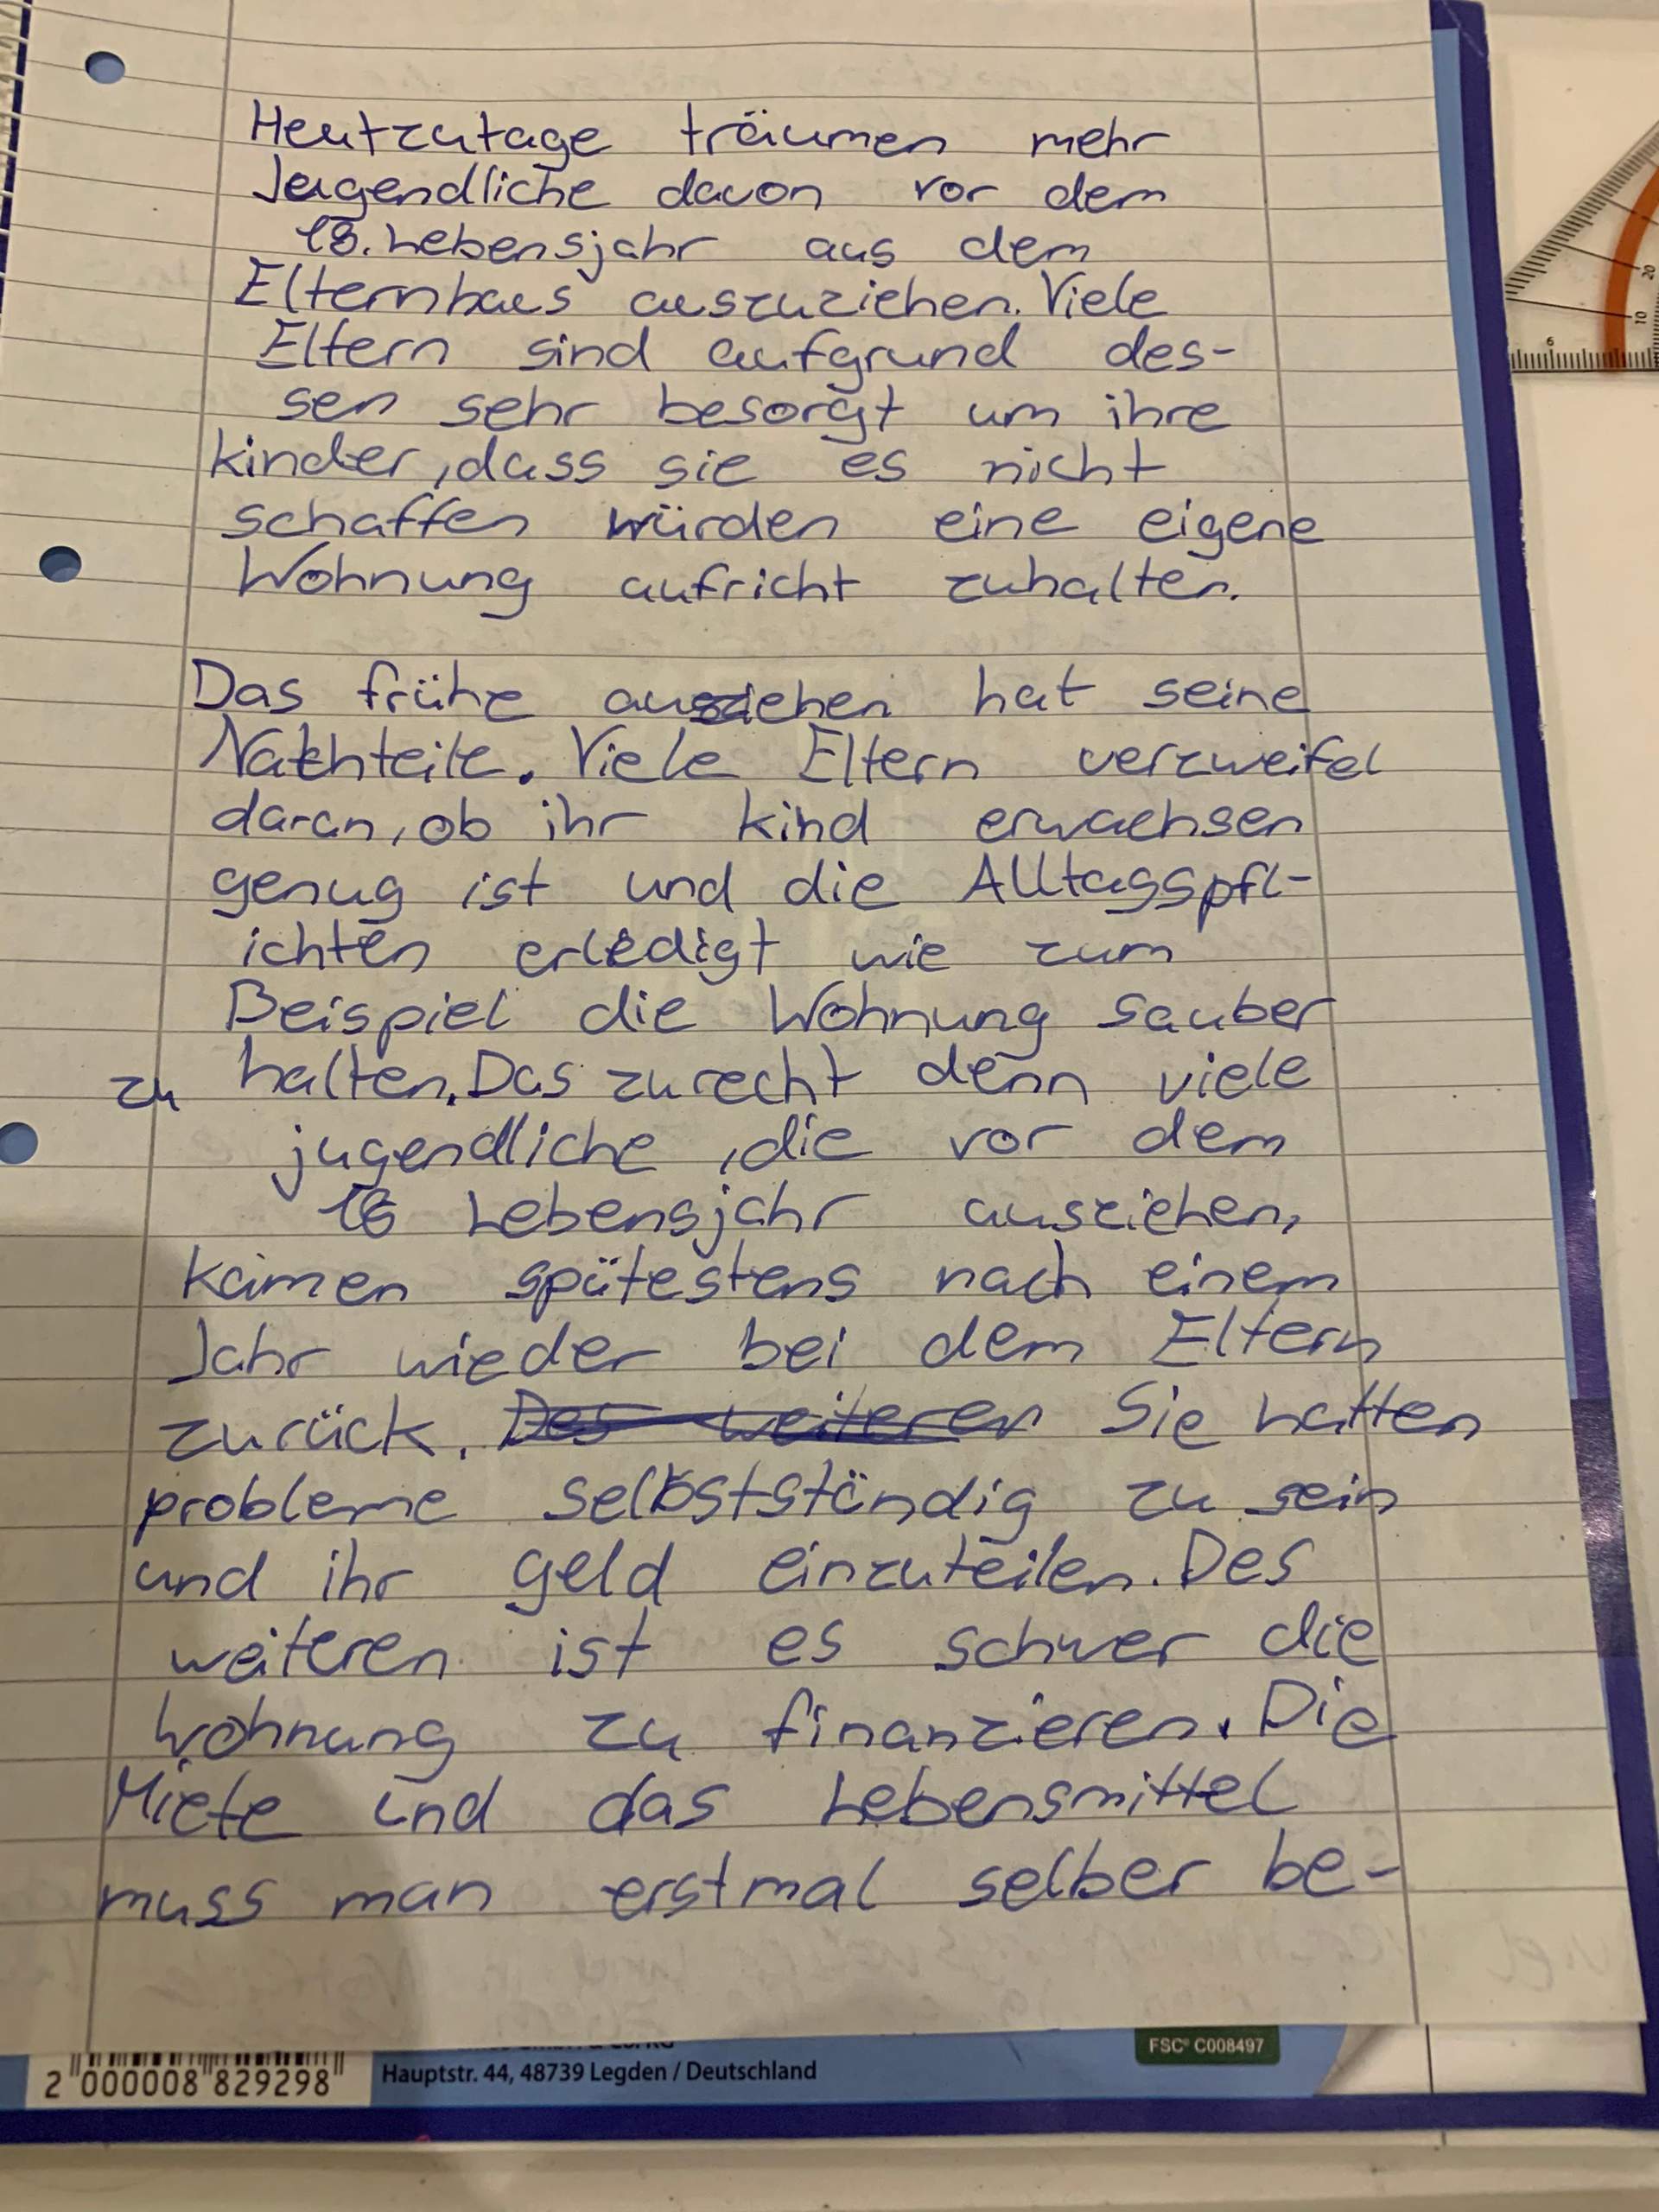 Heutzutage träumen mehr
Jugendliche davon vor dem
18. Lebensjahr aus dem
Elternhaus auszuziehen. Viele
Eltern sind aufgrund des-
sen sehr besorgt um ihre
kinder, dass sie es nicht
schaffen würden eine eigene
Wohnung aufricht zuhalten.
Das frühe ausziehen hat seine
Nachteile. Viele Eltern verzweifel
daran, ob ihr kind erwachsen
genug ist und die Alltagspfl-
ichten erledigt wie zum
Beispiel die Wohnung sauber
zu halten. Das zurecht denn viele
jugendliche, die vor dem
18 Lebensjahr ausziehen,
kamen spätestens nach einem
Jahr wieder bei dem Eltern
zurück. Des weiteren Sie hatten
probleme selbstständig zu sein
und ihr geld einzuteilen. Des
weiteren ist es schwer die
Wohnung zu finanzieren. Die
Miete und das Lebensmittel
muss man erstmal selber be-
2 000008 829298
Hauptstr. 44, 48739 Legden / Deutschland
FSC® C008497
20
10
6